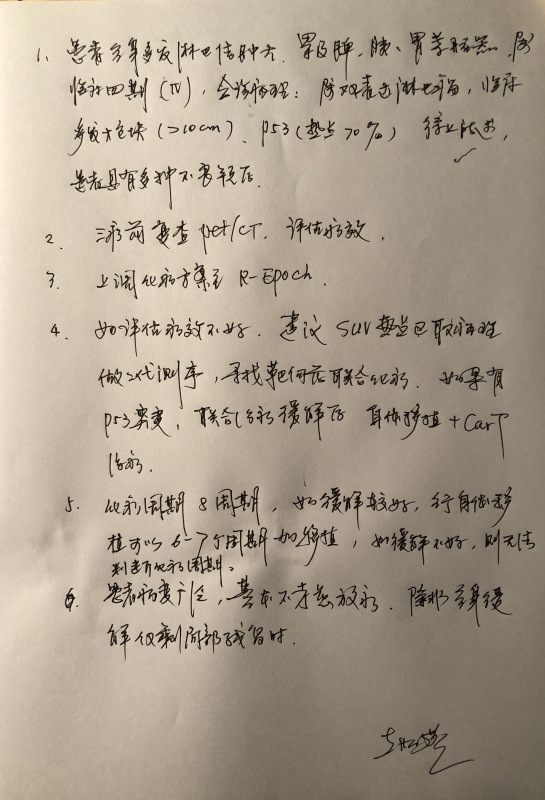 1、患者全身多发淋巴结肿大，累及脾、胰、胃等脏器，属
临床四期（IV），会诊病理：属双表达淋巴瘤，临床
多发大包块（>10cm）、p53（热点70%）
患者具有多种不良预后。
2、三疗前复查pet/CT，评估疗效。
3、上调化疗方案至R-Epoch。
4、如评估疗效不好，建议SUV热点区取病理
做二代测序，寻找靶向药联合化疗。如果有
p53突变，联合化疗缓解后 自体移植+CarT
治疗。
5、化疗周期8周期，如缓解较好，行自体移
植可以6-7个周期如移植，如缓解不好，则无法
判断化疗周期。
6、患者病变广泛，基本不考虑放疗，除非全身缓
解仅剩局部残留时。